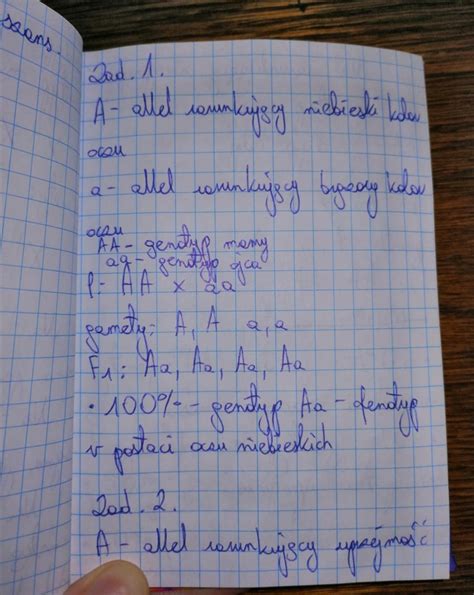 szans.
Zad. 1.
A - allel warunkujący niebieski kolor
oczu
a - allel warunkujący brązowy kolor
oczu
AA - genotyp mamy
aa - genotyp ojca
P: AA x aa
gamety: A, A a, a
F1: Aa, Aa, Aa, Aa
• 100% - genotyp Aa - fenotyp
w postaci oczu niebieskich
Zad. 2.
A - allel warunkujący uprzejmość